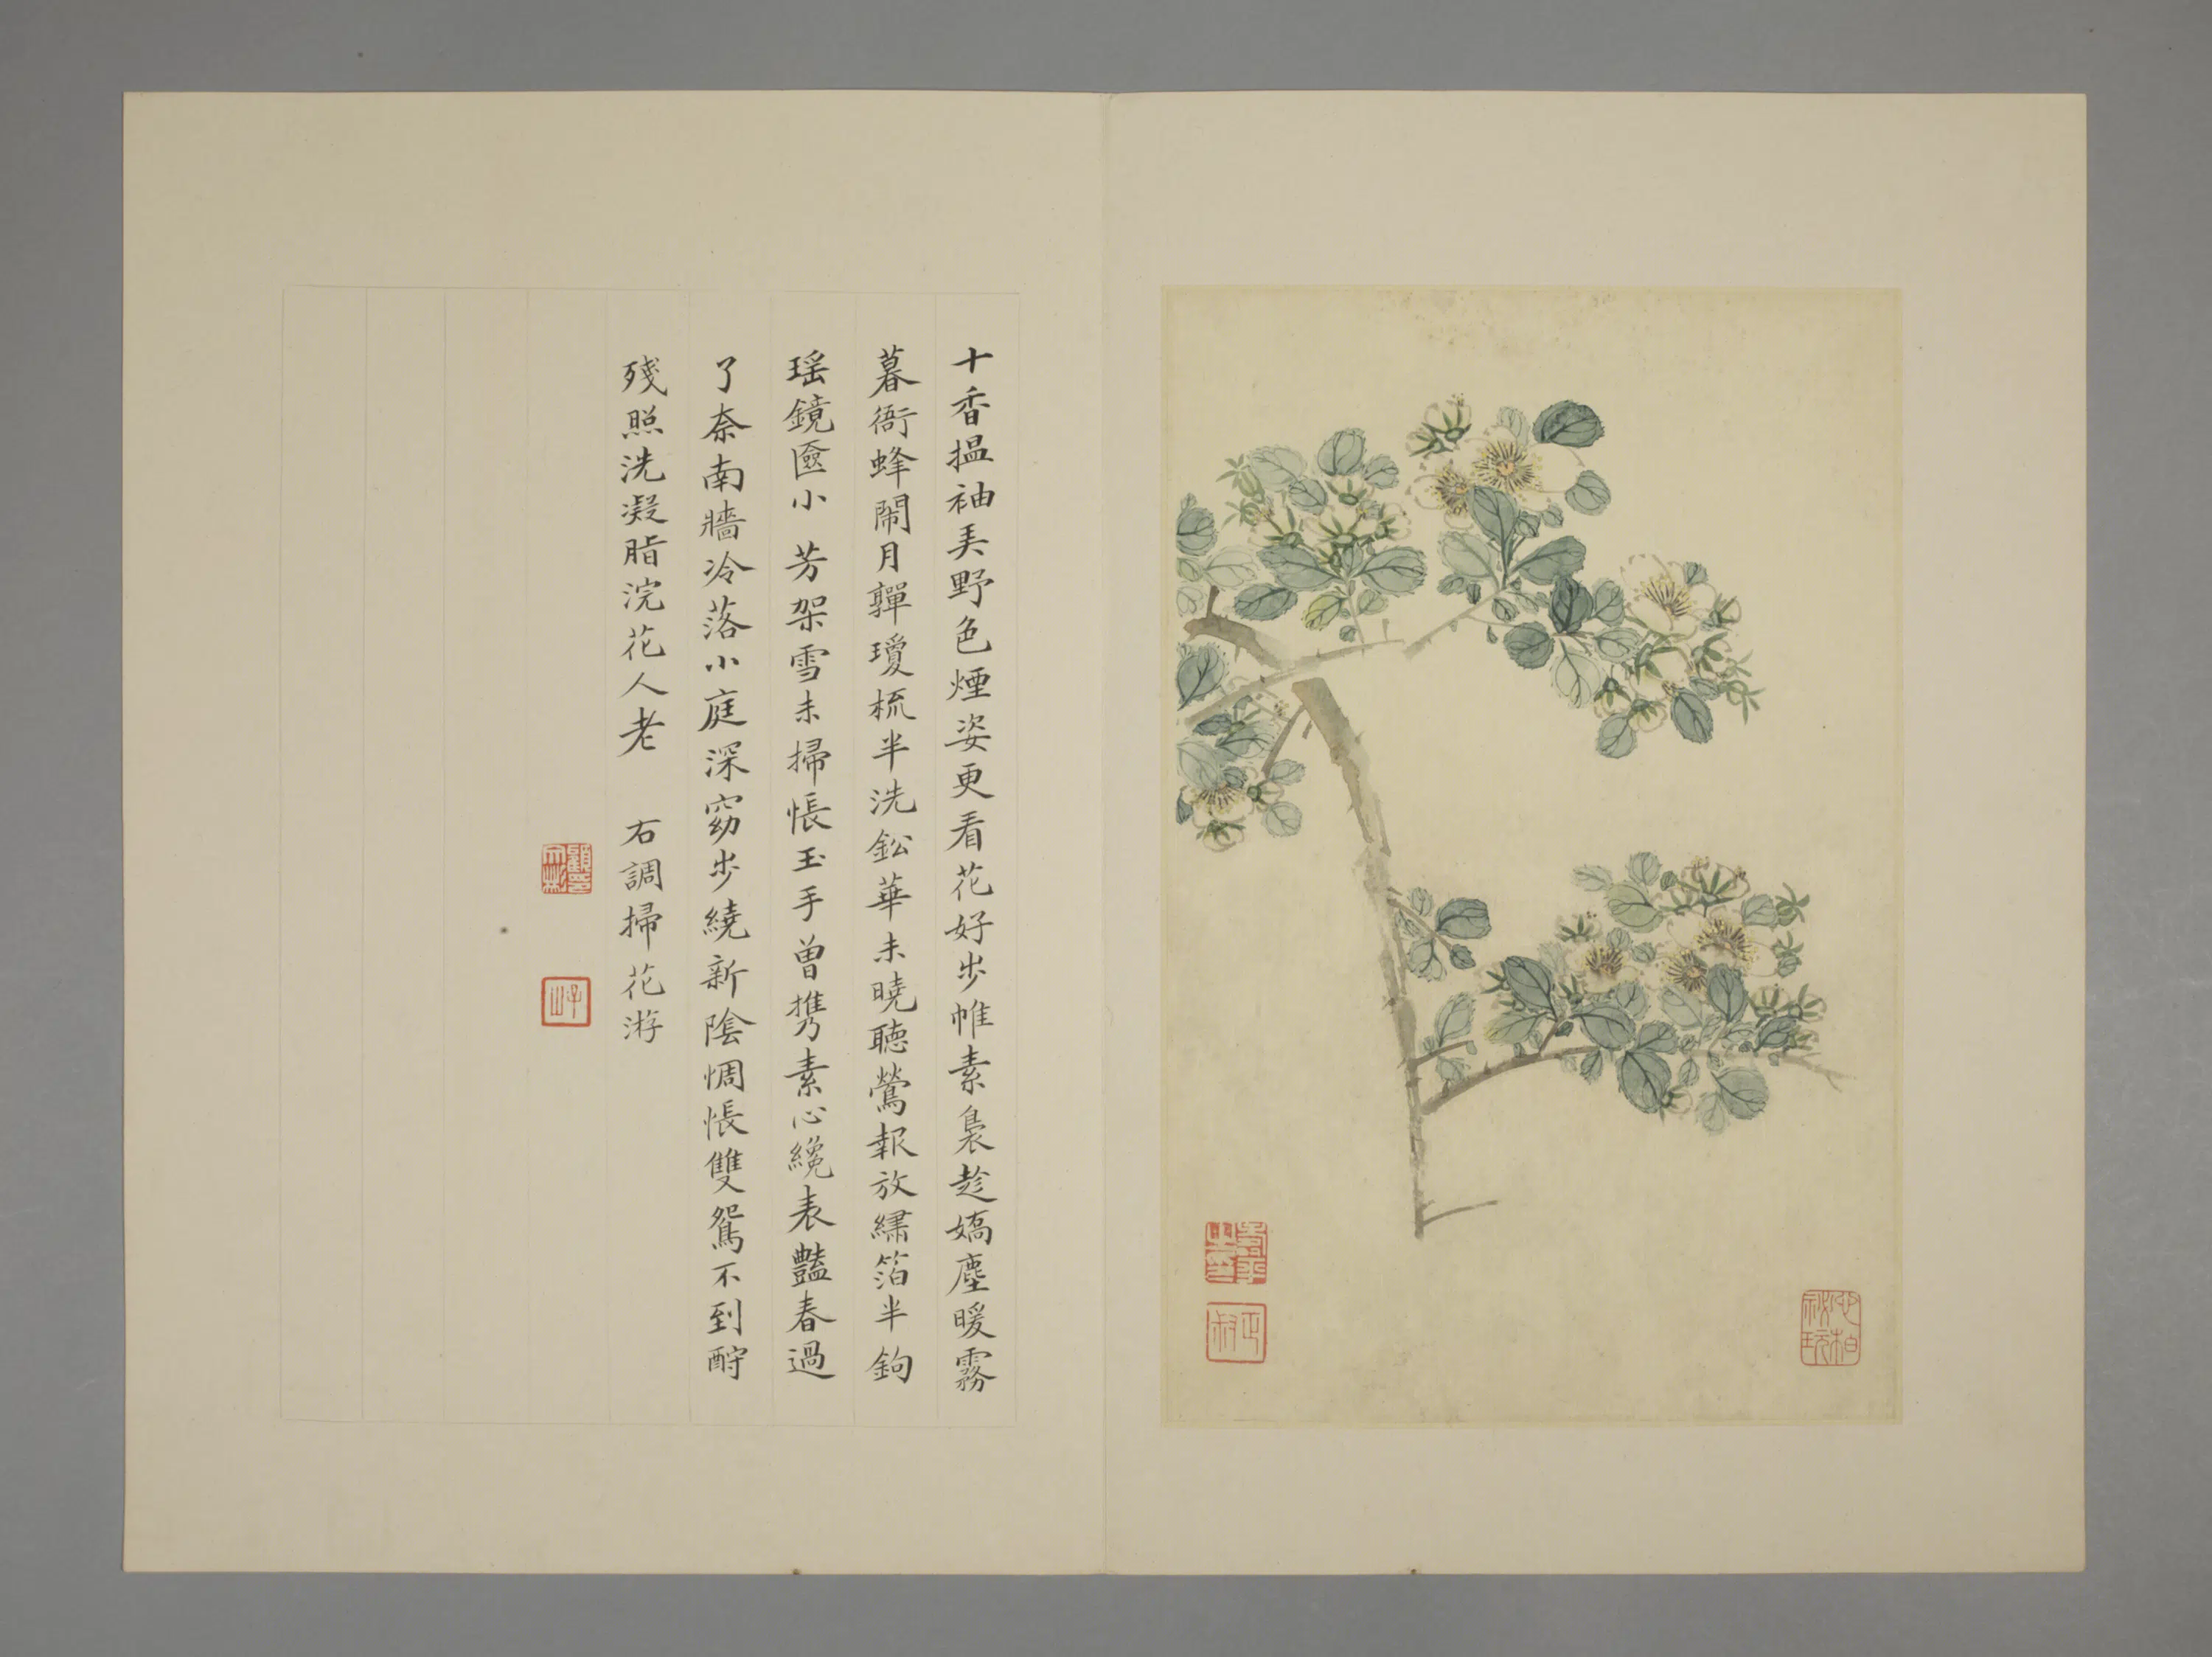 十香揾袖羙野色煙姿更看花好步帷素裊趁嬌塵暖霧
暮衙蜂鬧月軃瓊梳半洗鈆華未曉聽鶯報放繡箔半鉤
瑶鏡匳小 芳架雪未掃悵玉手曾携素心纔表豔春過
了奈南牆冷落小庭深窈步繞新陰惆悵雙鴛不到酹
殘照洗凝脂浣花人老 右調掃花游
顧文彬印
子山
壽平之印
正叔